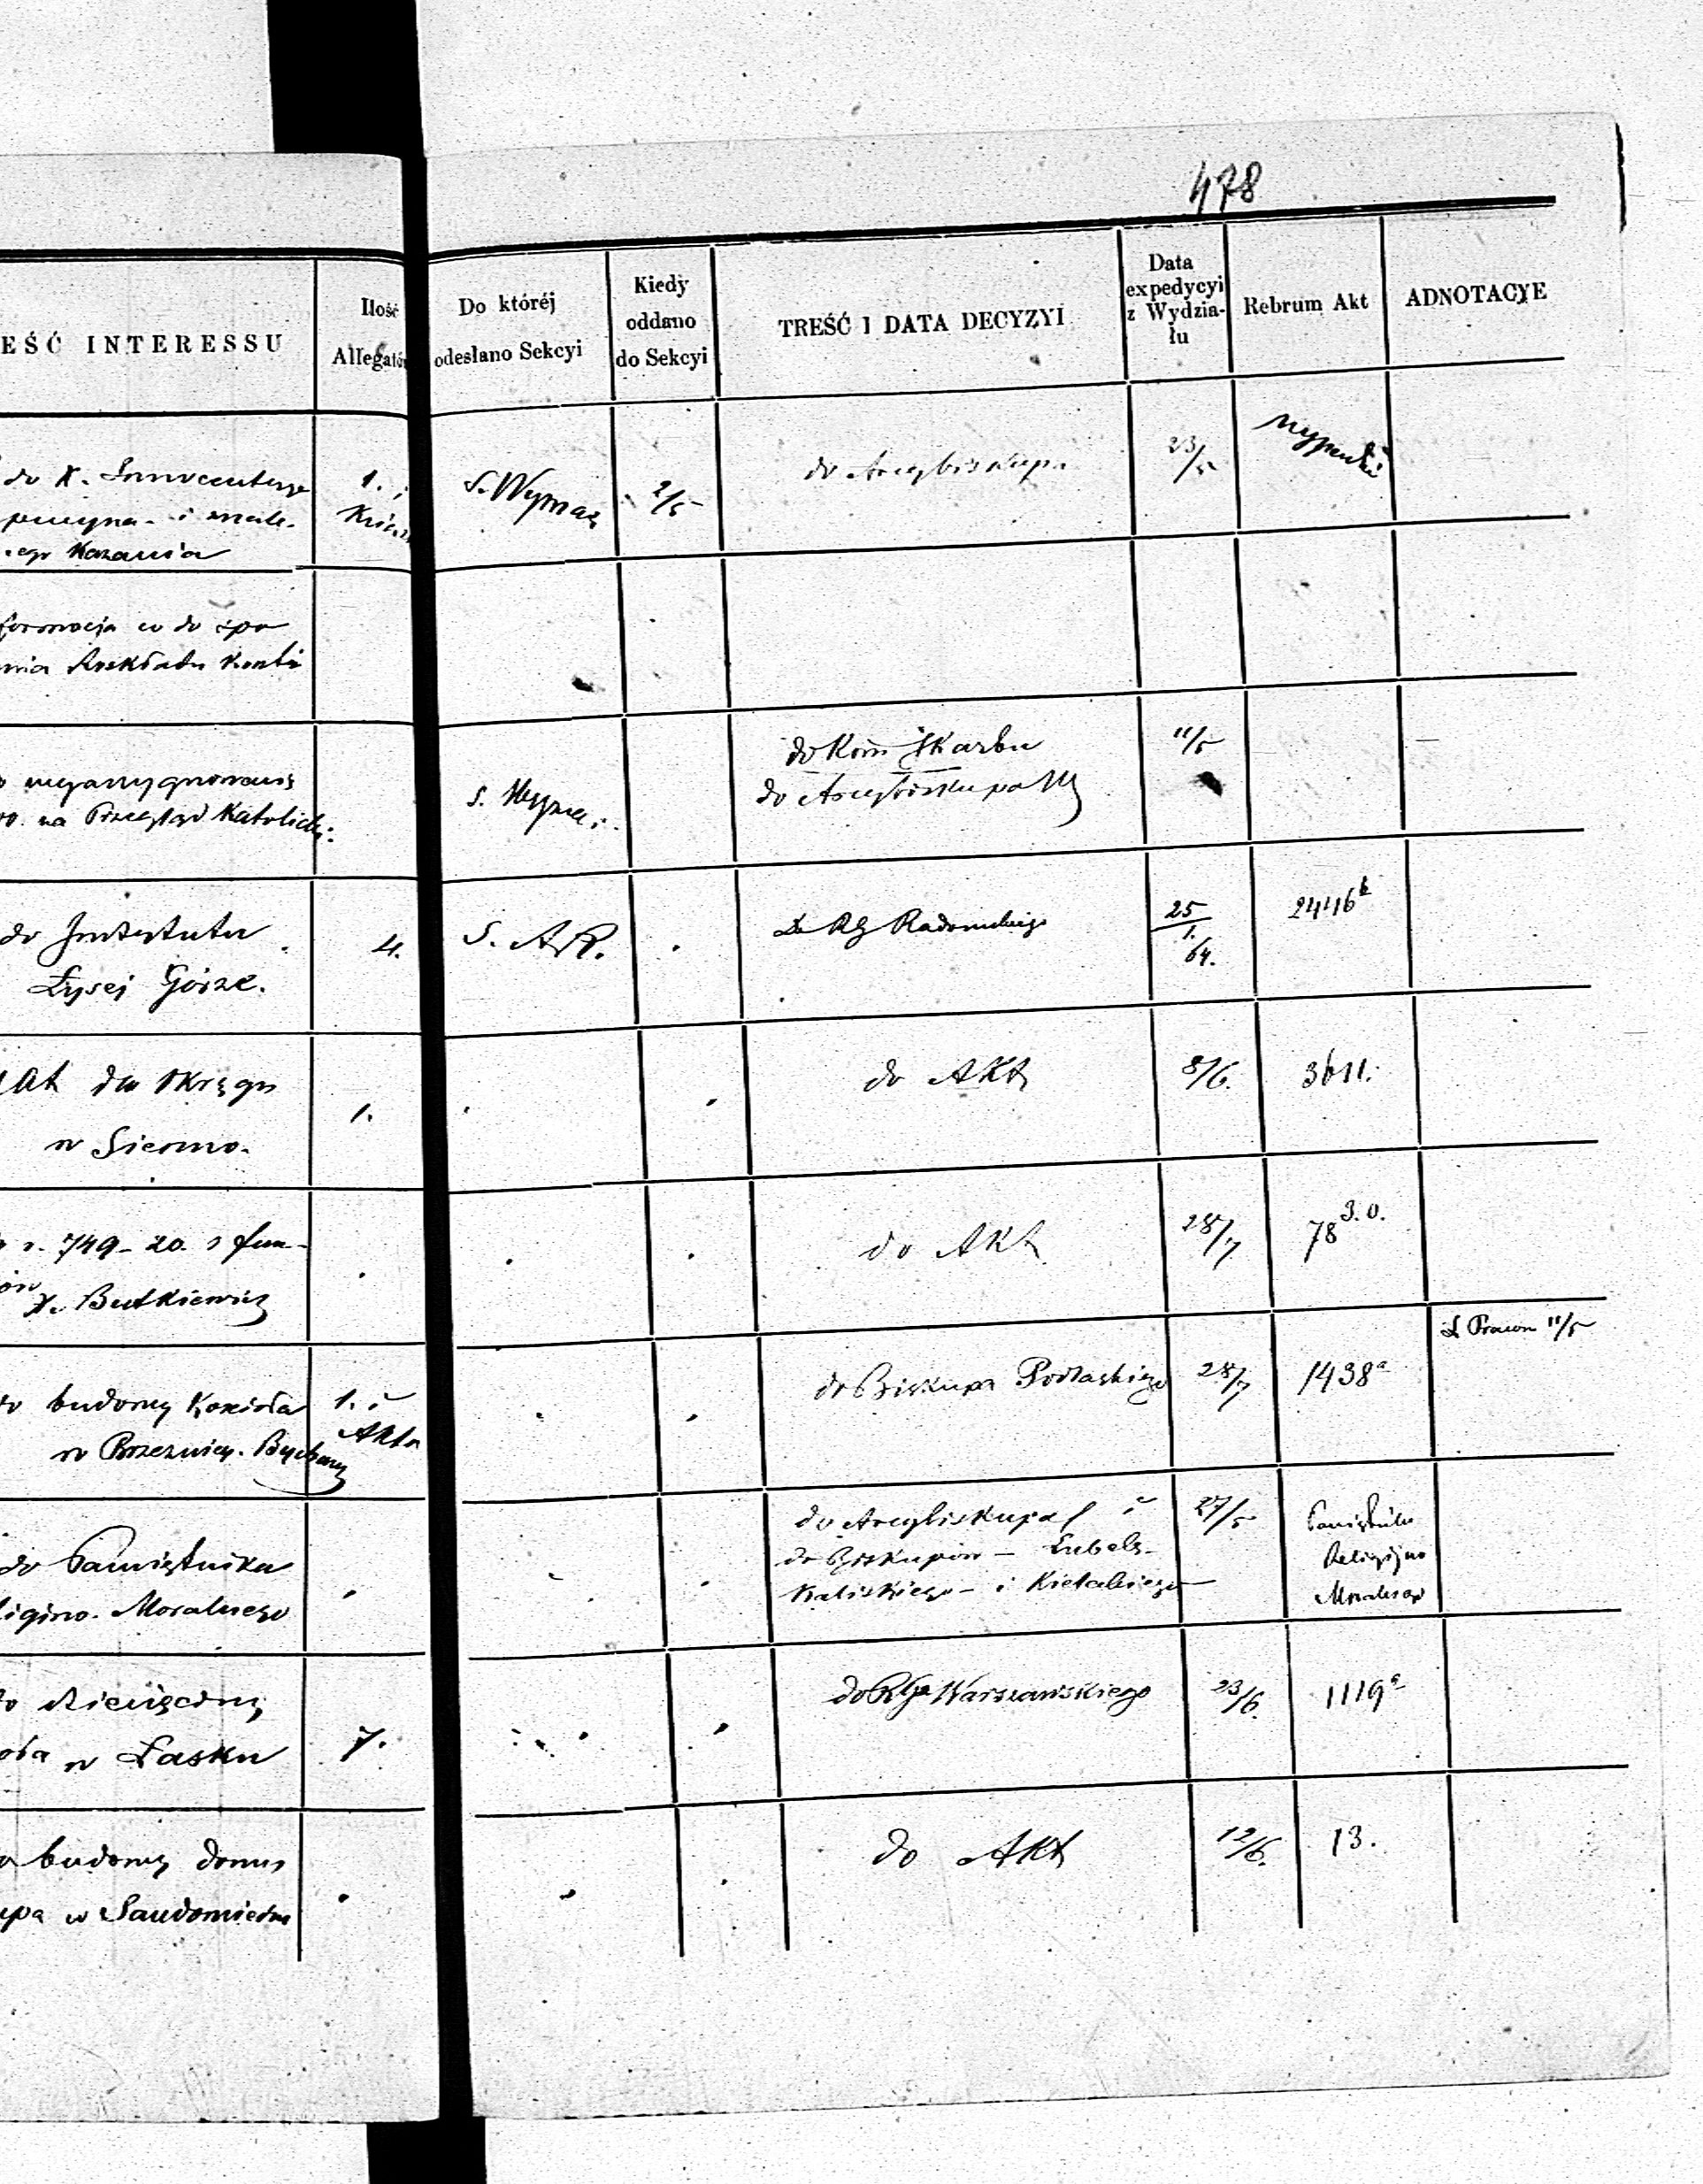 478
EŚĆ INTERESSU
Ilość
Allegatów
Do któréj
odesłano Sekcyi
Kiedy
oddano
do Sekcyi
TREŚĆ I DATA DECYZYI
Data
expedycyi
z Wydzia-
łu
Rebrum Akt
ADNOTACYE
do X.
i
Kazania
1. i
S. Wyznań
2/5
do Arcybiskupa
23/5
formacja co do
Rozkładu
na Przegląd Katolicki
S.
do Kom Skarbu
do Arcybiskupa W
11/5
do Instytutu
Łysej Górze.
4.
S. A. R.
Do RG Radomskiego
25/1.
64.
2446 b
w Siermo.
1.
do Akt
8/6.
3611.
r. 749-20. z fun-
X. Butkiewicz
do Akt
28/7
78 3.0.
budowy Kościoła
w Brzeznicy. Bychawy
1. i
Akta
do Biskupa Podlaskiego
28/7
1438 a
S Prawn 11/5
do Pamiętnika
ligino. Moralnego
do Arcybiskupa i
do Biskupów - Lubels-
Kaliskiego - i Kieleckiego
27/5
Pamiętnika
Religijno
Moralnego
w Łasku
7.
do RGo Warszawskiego
23/6.
1119 a
budowy domu
upa w Sandomierzu
do Akt
12/6.
13.